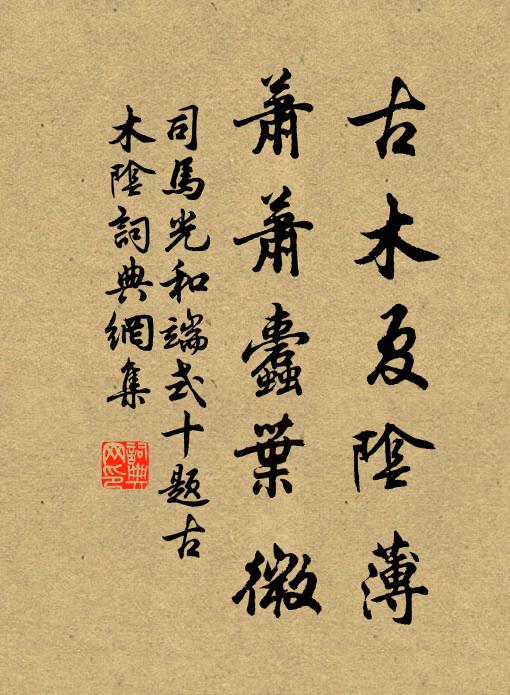 古木夏陰薄
蕭蕭蠹葉微
司馬光和端式十題古
木陰詞典網集
詞典
网印